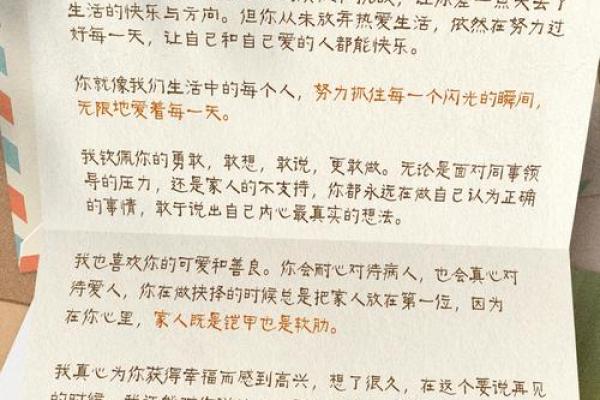 生活的快乐与方向。但你从未放弃热爱生活，依然在努力过
好每一天，让自己和自己爱的人都能快乐。
你就像我们生活中的每个人，努力抓住每一个闪光的瞬间，
无限地爱着每一天。
我钦佩你的勇敢，敢想，敢说，更敢做。无论是面对同事领
导的压力，还是家人的不支持，你都永远在做自己认为正确
的事情，敢于说出自己内心最真实的想法。
我也喜欢你的可爱和善良。你会耐心对待病人，也会真心对
待爱人，你在做抉择的时候总是把家人放在第一位，因为
在你心里，家人既是铠甲也是软肋。
我真心为你获得幸福而感到高兴，想了很久，在这个要说再见